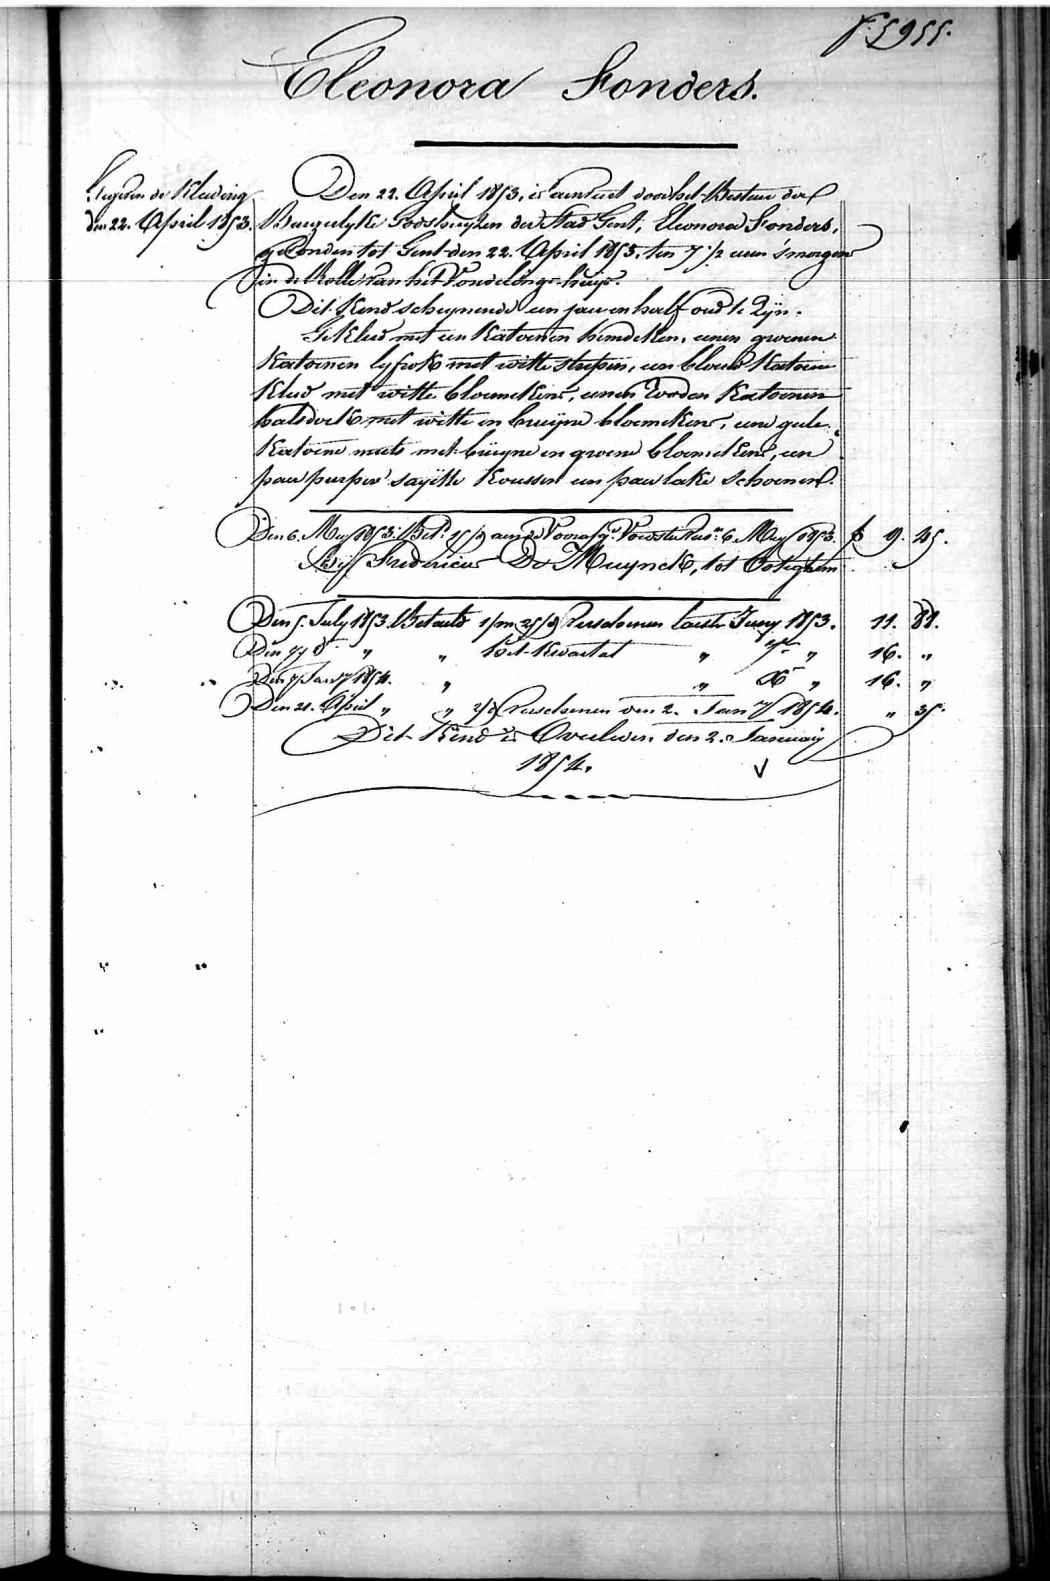 f. 5955.
Eleonora Fonders.
Gegeven de Kleeding
den 22. April 1853.
Den 22. April 1853, is aenveert door het Bestuer der
Burgerlyke Godshuyzen der Stad Gent, Eleonora Fonders,
gevonden tot Gent den 22. April 1853, ten 7 1/2 uren 's morgens
in de Rolle van het Vondelings-huys.
Dit Kind schynende een jaer en half oud te zyn.
Gekleed met een Katoenen hemdeken, eenen groenen
Katoenen lyfrok met witte strepen, een blauw Katoene
Kleed met witte bloemekens, eenen rooden Katoenen
halsdoek met witte en bruyne bloemekens, eene gele
Katoene muts met bruyne en groene bloemekens, een
paer purper sayette Koussen een paer lake schoenen.
Den 6. Mey 1853. Bet. 15/9 aen de Voorsz. Voedster 6. Mey 1853. f 9. 45.
Bij Fredericus De Muynck, tot Ooteghem
Den 5. July 1853. Betaeld 1/m 25/d Verschenen laeste Juny 1853. 11. 88.
Den 77 8 " " het Kwartael " 7bre " 16. "
Den 7 Jany 1854. " " Xbre " 16. "
Den 21. April " " 2/d Verschenen den 2. Jany 1854. " 35.
Dit Kind is Overleden den 2. January
1854.